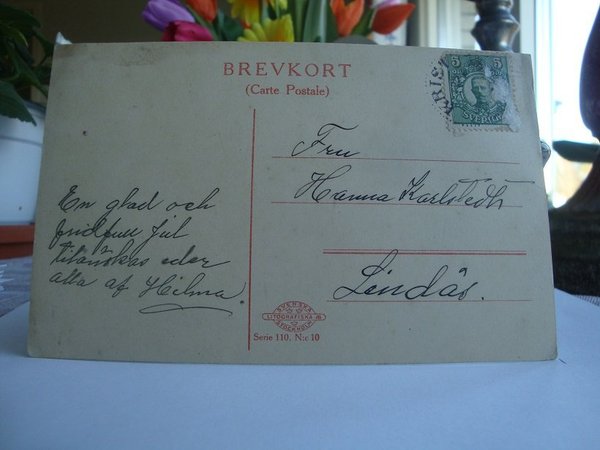 BREVKORT
(Carte Postale)
5 5
SVERIGE
En glad och
fridfull jul
tilönskas eder
alla af Hilma.
Fru
Hanna Karlstedt
Lindås.
SVENSKA
LITOGRAFISKA AB
STOCKHOLM
Serie 110. N:r 10